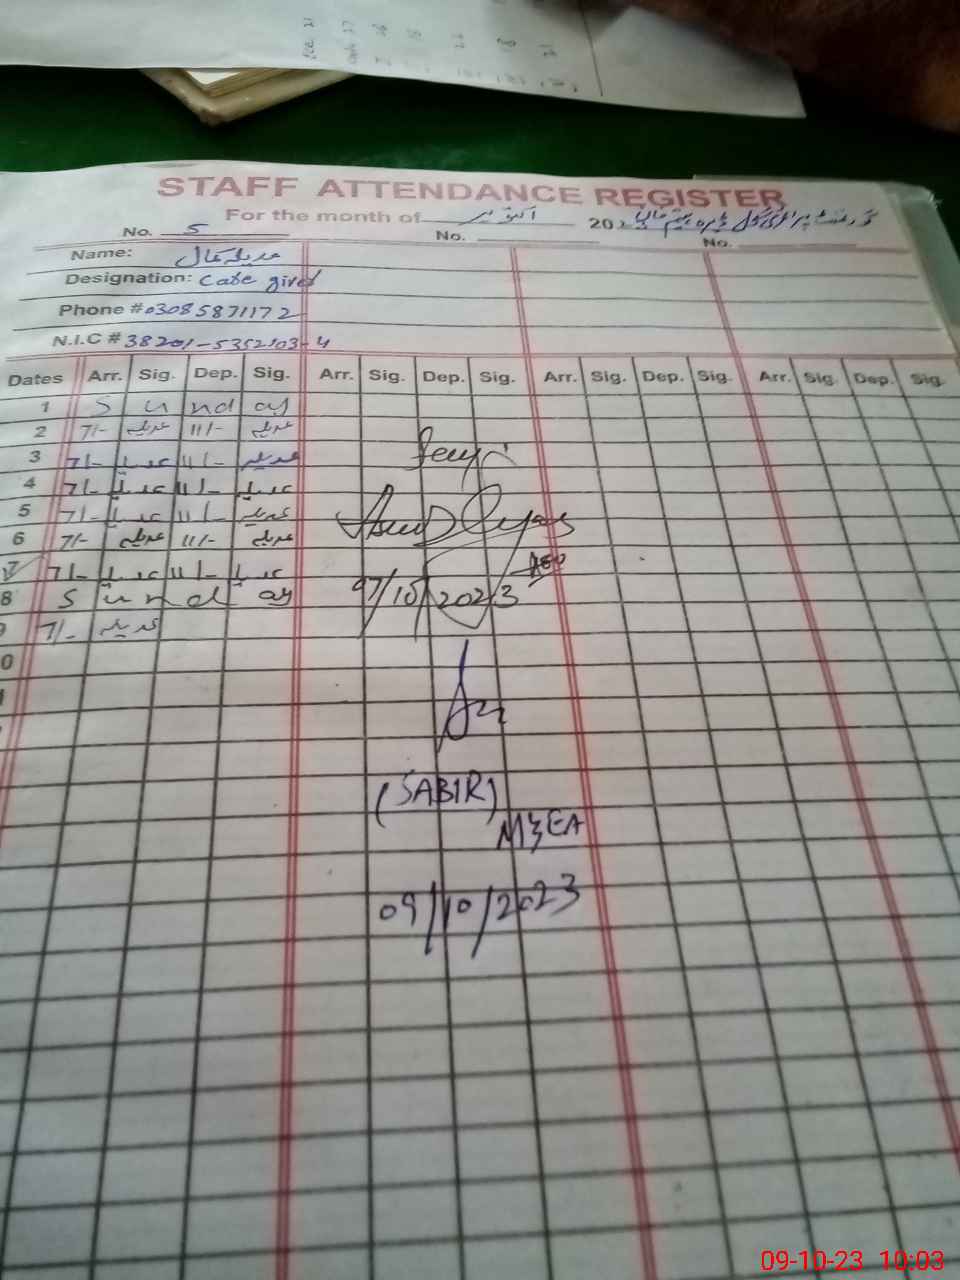 STAFF ATTENDANCE REGISTER
For the month of اکتوبر 2023 گورنمنٹ پرائمری سکول
No. 5 No. No.
Name: عدیلہ کمال
Designation: Care giver
Phone # 03085871172
N.I.C # 38201-5352103-4
Dates Arr. Sig. Dep. Sig. Arr. Sig. Dep. Sig. Arr. Sig. Dep. Sig. Arr. Sig. Dep. Sig.
1 Sunday
2 7/- عدیلہ 11/- عدیلہ
3 7/- عدیلہ 11/- عدیلہ
4 7/- عدیلہ 11/- عدیلہ
5 7/- عدیلہ 11/- عدیلہ
6 7/- عدیلہ 11/- عدیلہ
AEO
7 7/- عدیلہ 11/- عدیلہ
8 Sunday 07/10/2023
9 7/- عدیلہ
0
(SABIR)
MEA
09/10/2023
09-10-23 10:03